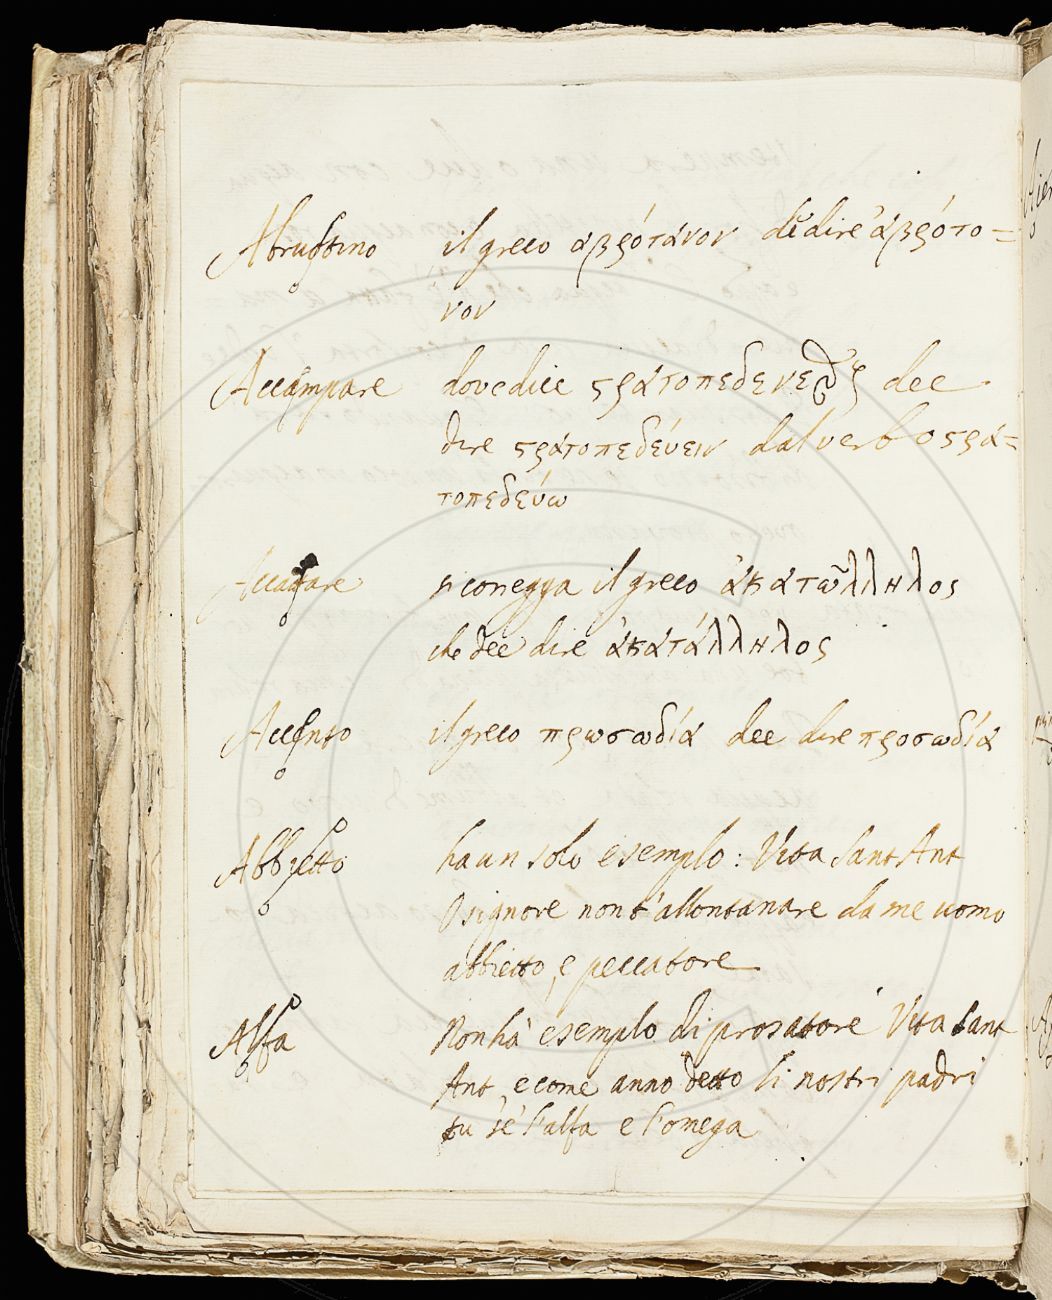 Abruostino il greco αβρότανον de dire ἀβρότο=
νον
Accampare dove dice ςρατοπεδενεσθς dee
dire ςρατοπεδέυειν dal verbo ςρα=
τοπεδέυω
Accafare si coregga il greco ἀκατῶλληλος
che dee dire ἀκατάλληλος
Accento il greco πρωσωδία dee dire προσωδία
Abbietto ha un solo esemplo: Vita Sant Ant
O signore non t'allontanare da me uomo
abbietto, e peccatore
Alfa Non hà esemplo di prosatore Vita Sant
Ant, e come anno detto li nostri padri
tu se' l'alfa e l'omega